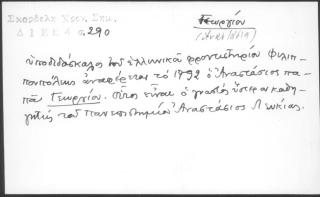 Σκορδέλη Χρον. Σημ.
Δ Ι Ε Ε 4 σ. 290
Γεωργίου
(Αναστάσιος)
ὑποδιδάσκαλος τοῦ ἑλληνικοῦ φροντιστηρίου Φιλιπ-
πουπόλεως ἀναφέρεται τὸ 1792 ὁ Ἀναστάσιος πα-
πᾶ Γεωργίου. οὗτος εἶναι ὁ γνωστὸς ὕστερον καθη-
γητὴς τοῦ Πανεπιστημίου Ἀναστάσιος Λευκίας.